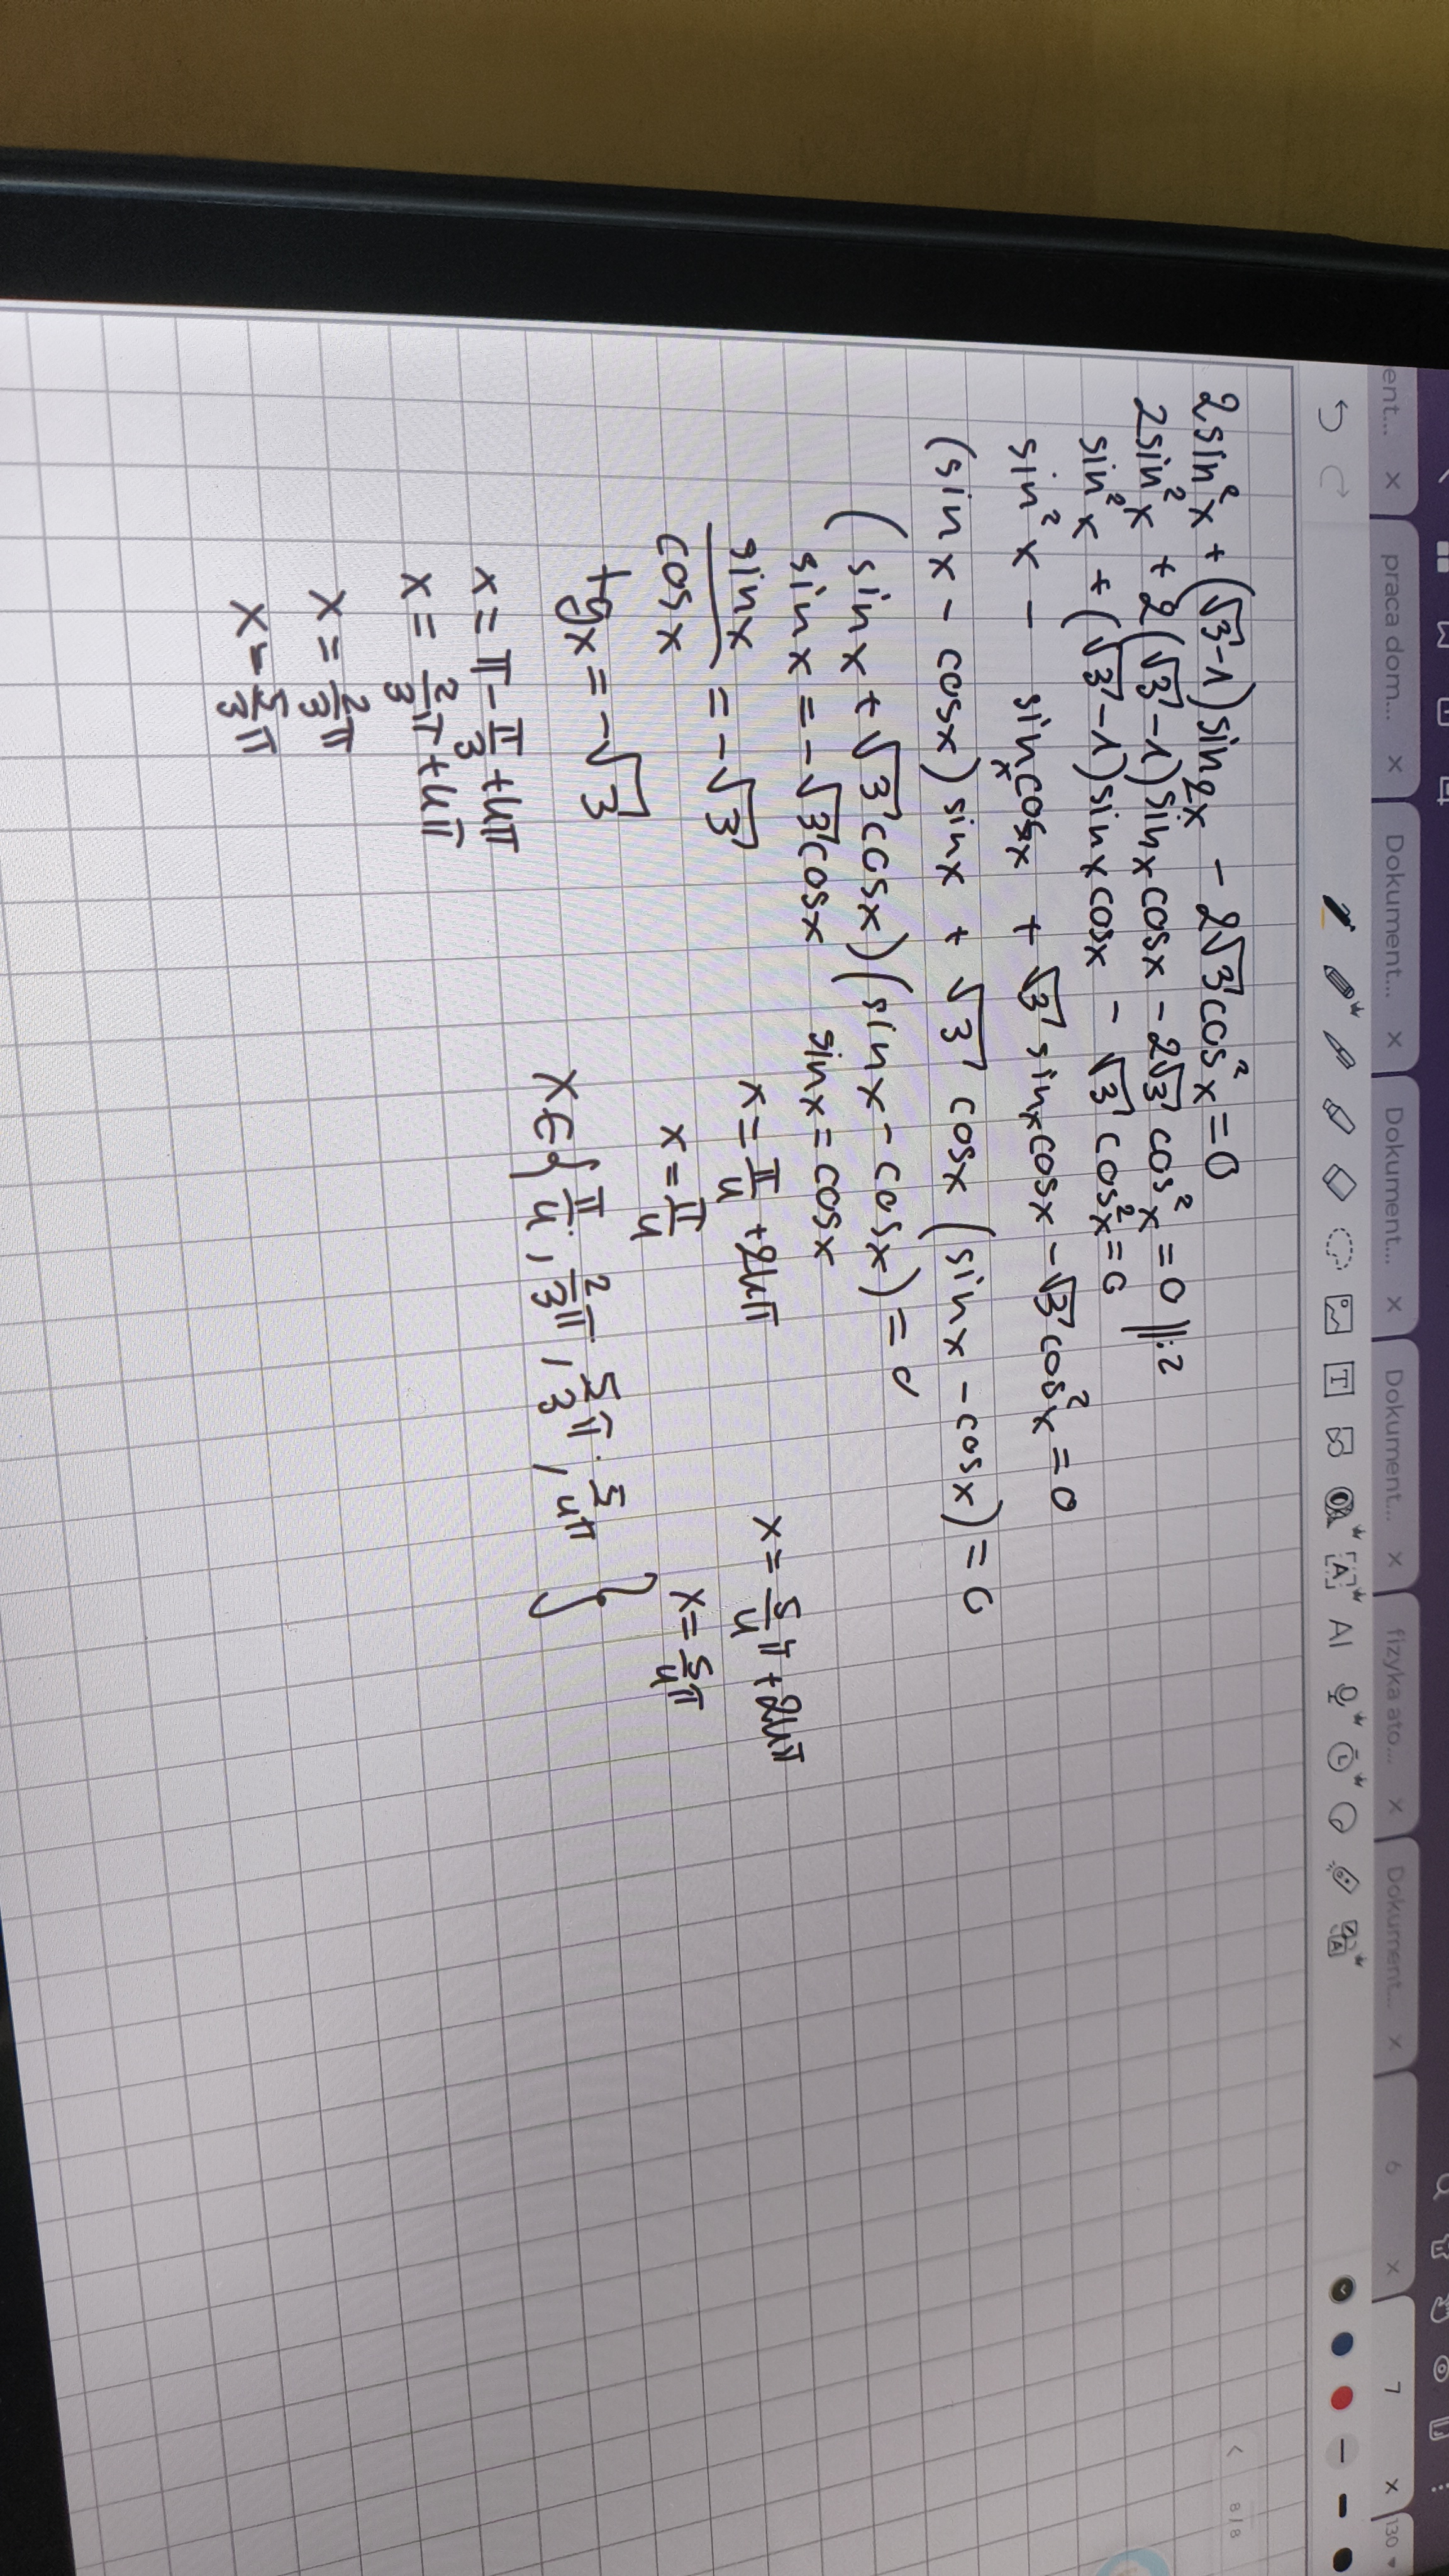 ent... × praca dom... × Dokument... × Dokument... × Dokument... × fizyka ato... × Dokument... × 6 × 7 × 130
T A AI A
8/8
2sin²x + (√3-1)sin2x - 2√3cos²x = 0
2sin²x + 2(√3-1)sinxcosx - 2√3cos²x = 0 ||:2
sin²x + (√3-1)sinxcosx - √3cos²x = 0
sin²x - sinxcosx + √3 sinxcosx - √3cos²x = 0
(sinx - cosx) sinx + √3 cosx (sinx - cosx) = 0
(sinx + √3cosx)(sinx - cosx) = 0
sinx = -√3cosx sinx = cosx
sinx/cosx = -√3 x = π/4 + 2kπ x = 5/4π + 2kπ
x = π/4 x = 5/4π
tgx = -√3
x ∈ {π/4, 2/3π, 5/3π, 5/4π}
x = π - π/3 + kπ
x = 2/3π + kπ
x = 2/3π
x = 5/3π